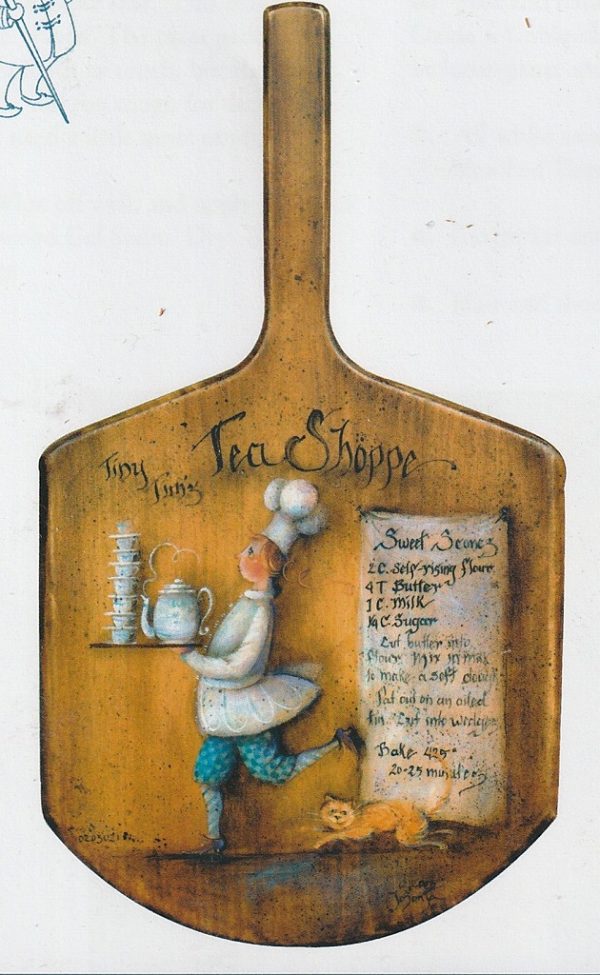 Tea Shoppe
Tiny
Tim's
Sweet Scones
2 C. Self-rising flour
4 T Butter
1 C. Milk
¼ C. Sugar
Cut butter into
flour. Mix in milk
to make a soft dough
Pat out on an oiled
tin. Cut into wedges
Bake 425°
20-25 minutes